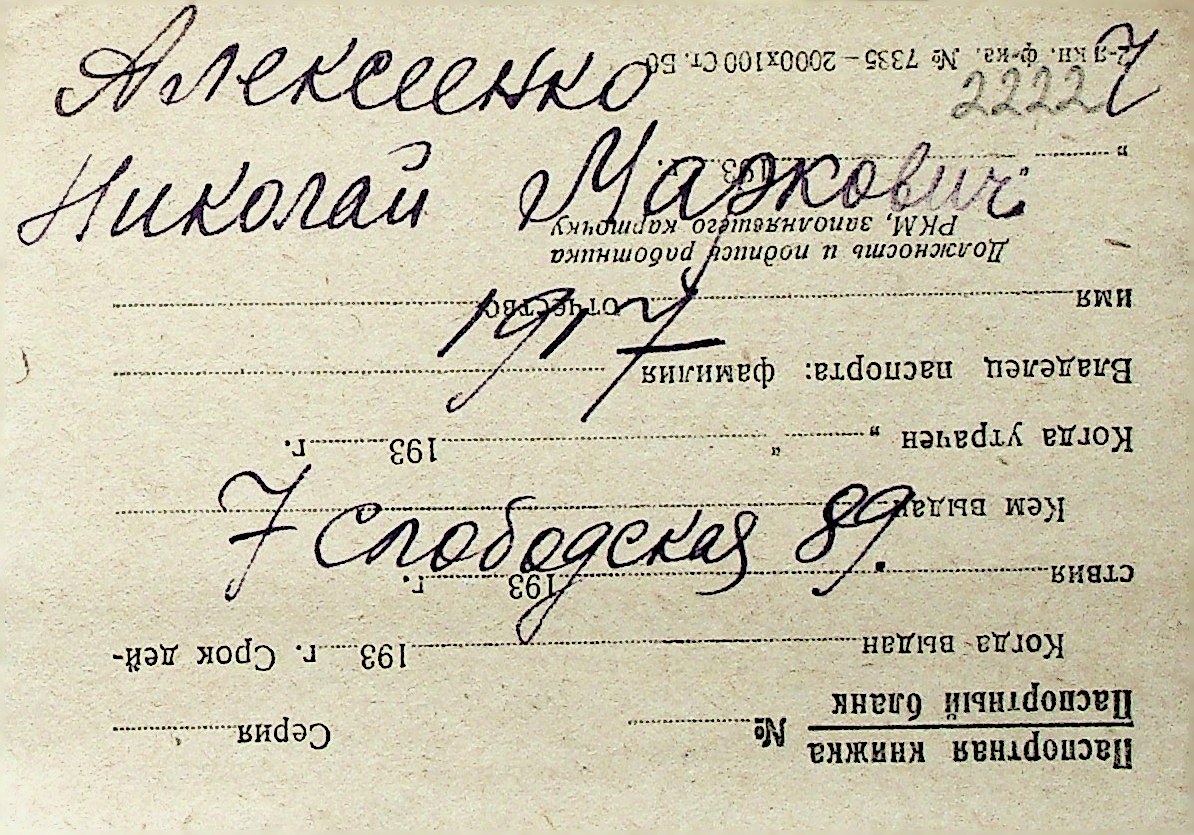 Алексеенко
Николай Маркович
1917
7 Слободская 89.
22227
Паспортная книжка
Паспортный бланк № Серия
Когда выдан 193 г. Срок дей-
ствия 193 г.
Кем выдан
Когда утрачен „ “ 193 г.
Владелец паспорта: фамилия
имя отчество
Должность и подпись работника
РКМ, заполнявшего карточку
„ 193 г.
2-я кн. ф-ка. № 7335—2000х100 Ст. Б6